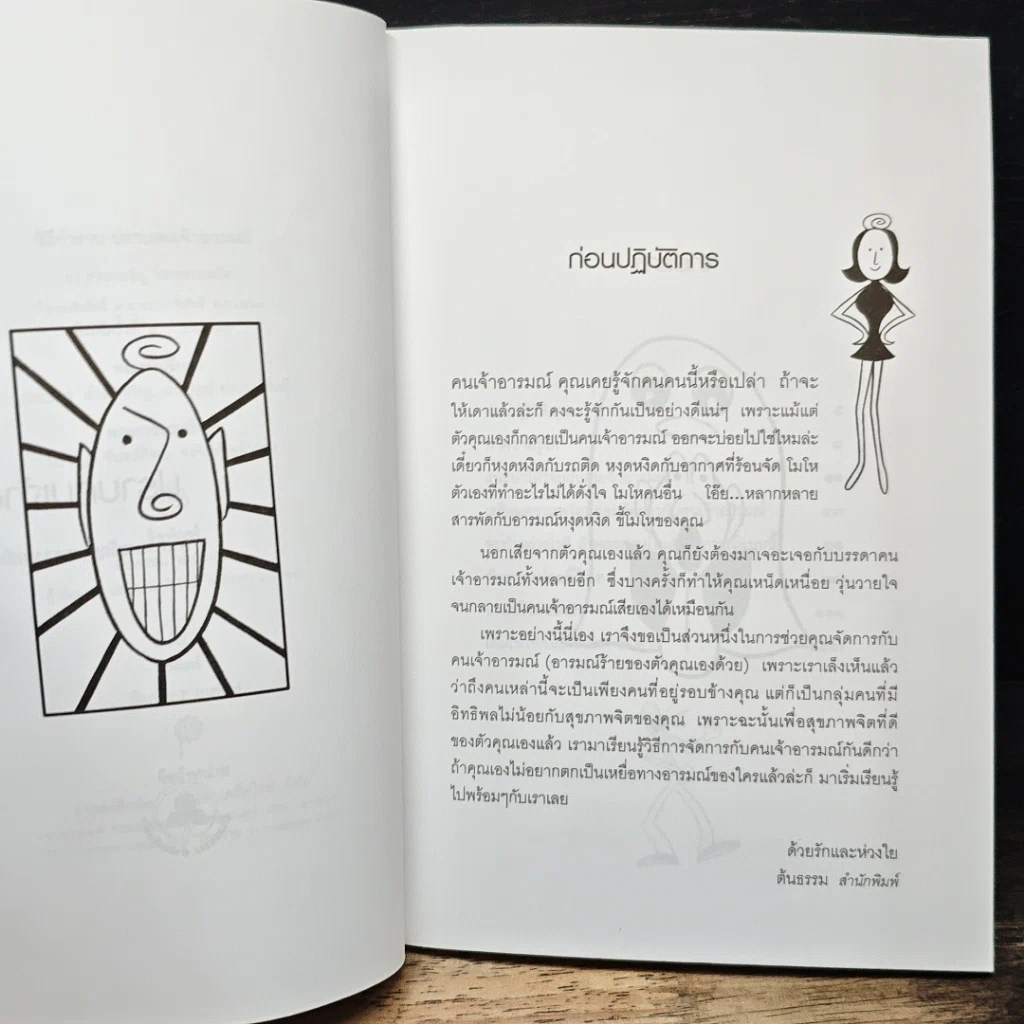 ก่อนปฏิบัติการ
คนเจ้าอารมณ์ คุณเคยรู้จักคนคนนี้หรือเปล่า ถ้าจะ
ให้เดาแล้วล่ะก็ คงจะรู้จักกันเป็นอย่างดีแน่ๆ เพราะแม้แต่
ตัวคุณเองก็กลายเป็นคนเจ้าอารมณ์ ออกจะบ่อยไปใช่ไหมล่ะ
เดี๋ยวก็หงุดหงิดกับรถติด หงุดหงิดกับอากาศที่ร้อนจัด โมโห
ตัวเองที่ทำอะไรไม่ได้ดั่งใจ โมโหคนอื่น โอ๊ย...หลากหลาย
สารพัดกับอารมณ์หงุดหงิด ขี้โมโหของคุณ
นอกเสียจากตัวคุณเองแล้ว คุณก็ยังต้องมาเจอะเจอกับบรรดาคน
เจ้าอารมณ์ทั้งหลายอีก ซึ่งบางครั้งก็ทำให้คุณเหน็ดเหนื่อย วุ่นวายใจ
จนกลายเป็นคนเจ้าอารมณ์เสียเองได้เหมือนกัน
เพราะอย่างนี้นี่เอง เราจึงขอเป็นส่วนหนึ่งในการช่วยคุณจัดการกับ
คนเจ้าอารมณ์ (อารมณ์ร้ายของตัวคุณเองด้วย) เพราะเราเล็งเห็นแล้ว
ว่าถึงคนเหล่านี้จะเป็นเพียงคนที่อยู่รอบข้างคุณ แต่ก็เป็นกลุ่มคนที่มี
อิทธิพลไม่น้อยกับสุขภาพจิตของคุณ เพราะฉะนั้นเพื่อสุขภาพจิตที่ดี
ของตัวคุณเองแล้ว เรามาเรียนรู้วิธีการจัดการกับคนเจ้าอารมณ์กันดีกว่า
ถ้าคุณเองไม่อยากตกเป็นเหยื่อทางอารมณ์ของใครแล้วล่ะก็ มาเริ่มเรียนรู้
ไปพร้อมๆกับเราเลย
ด้วยรักและห่วงใย
ต้นธรรม สำนักพิมพ์